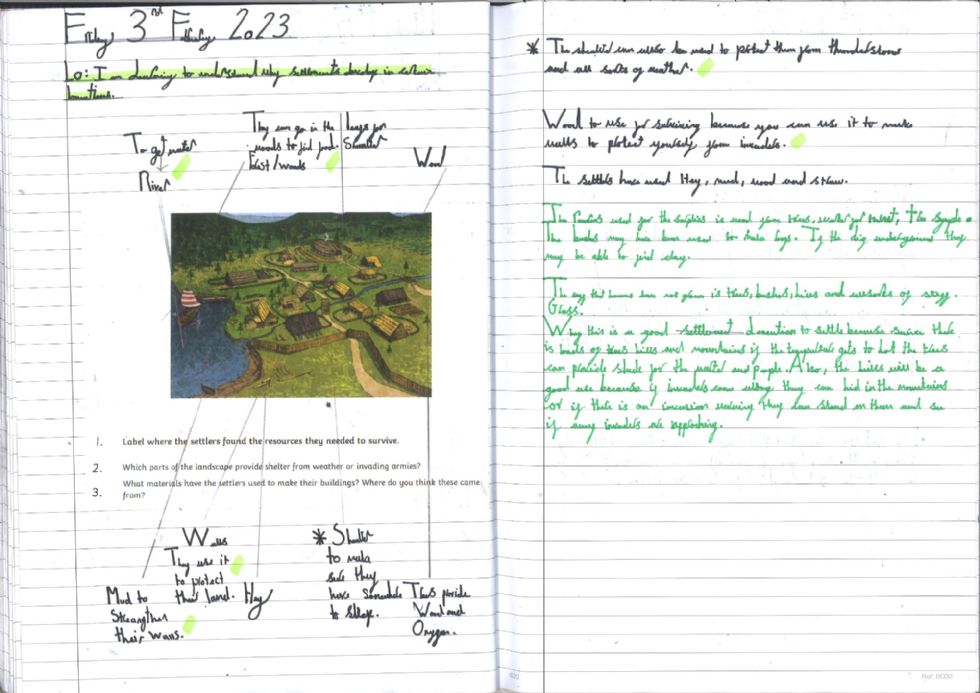 Friday 3rd February 2023
Lo: I am learning to understand why settlements develop in certain
locations.
To get water
River
They can go in the
woods to find food.
Forest/woods
Shelter
Wood
1. Label where the settlers found the resources they needed to survive.
2. Which parts of the landscape provide shelter from weather or invading armies?
3. What materials have the settlers used to make their buildings? Where do you think these came
from?
Walls
They use it
to protect
their land.
Hay
Mud to
Streangthen
their walls.
* Shelter
to make
sure they
have somewhere
to sleep.
Trees provide
Wood and
Oxygen.
* The shelter can also be used to protect them from thunderstorms
and all sorts of weather.
Wood to use for surviving because you can use it to make
walls to protect yourself from invaders.
The settlers have used Hay, mud, wood and straw.
The used for the is wood from trees, water for
The bushes may have been used to make logs. If the dig underground they
may be able to find clay.
The that have not is trees, bushes, hills and of
Glass.
Why this is a good settlement location to settle because there
is loads of trees hills and mountains if the gets to hot the trees
can provide shade for the and people. Also, the hills will be a
good use because if invaders come they can hid in the mountains
or if there is an invasion they can stand on them and see
if any invaders are approching.
Ref: BO32